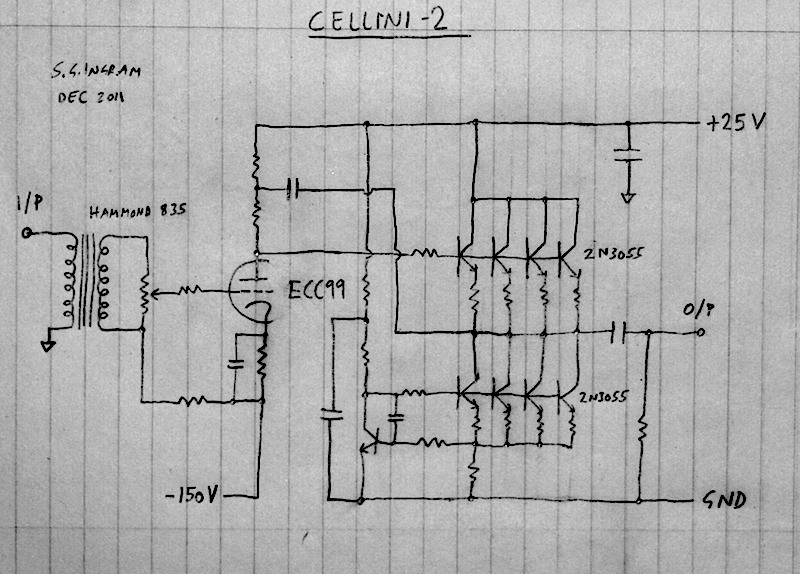 CELLINI-2
S.G.INGRAM
DEC 2011
+25V
I/P
HAMMOND 835
2N3055
ECC99
O/P
2N3055
-150V
GND